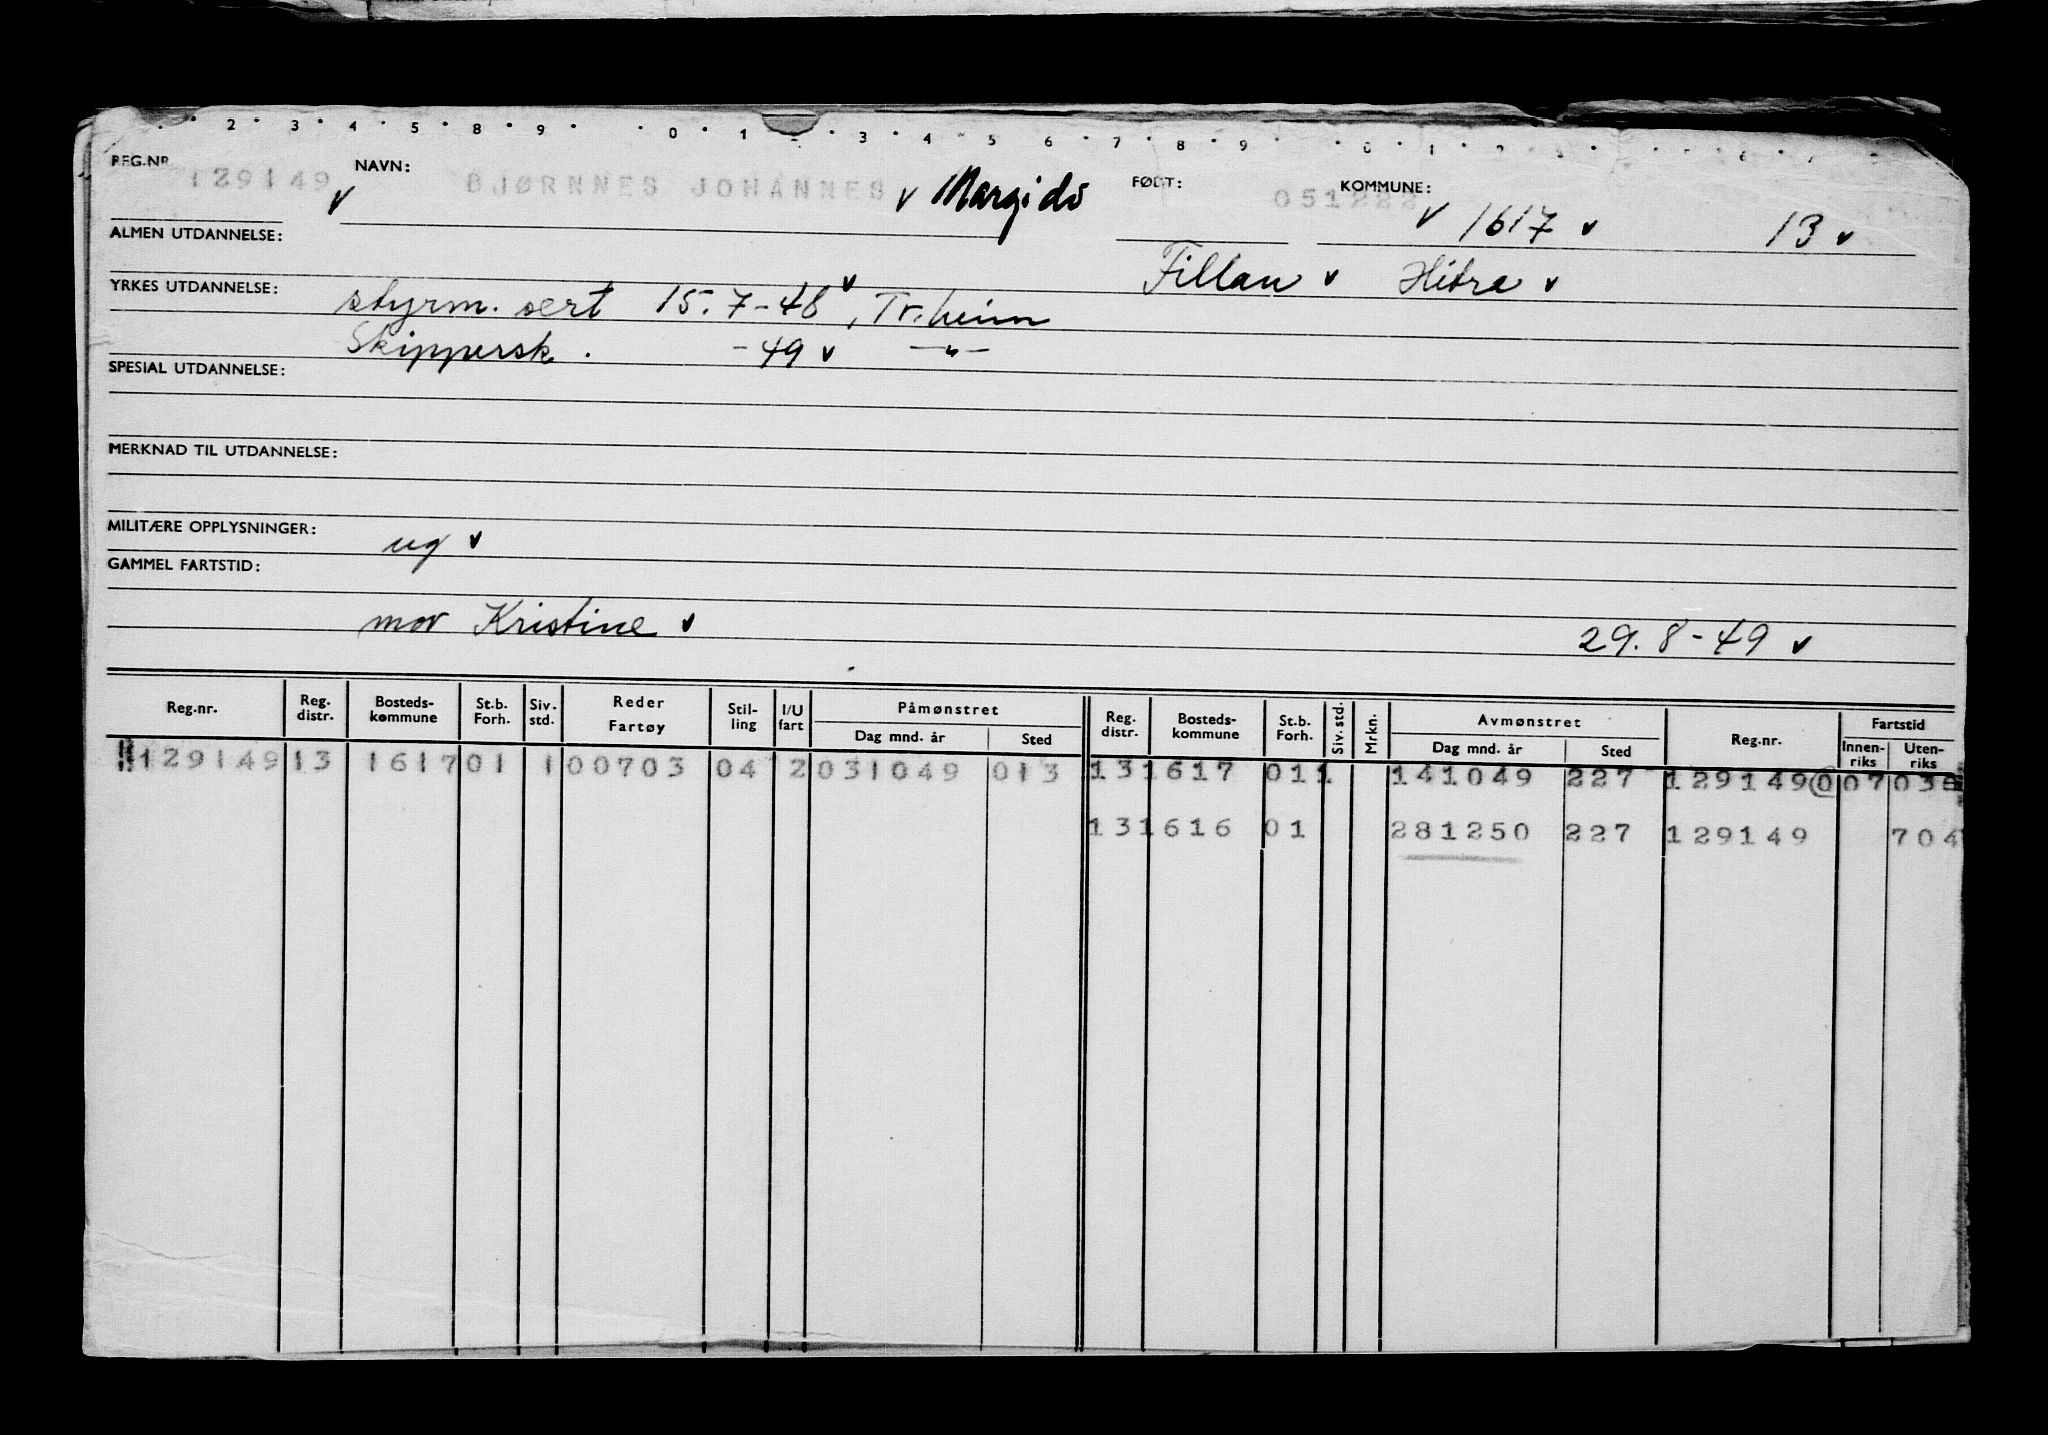 2 3 4 5 8 9 0 1 3 4 5 6 7 8 9 0 1 2
REG.NR 129149 NAVN: BJØRNNES JOHANNES Margido FØDT: 051222 KOMMUNE: 1617 13
ALMEN UTDANNELSE: Fillan Hitra
YRKES UTDANNELSE: styrm. sert 15.7-48, Tr.heim
Skippersk. -49 -"-
SPESIAL UTDANNELSE:
MERKNAD TIL UTDANNELSE:
MILITÆRE OPPLYSNINGER: ug
GAMMEL FARTSTID:
mor Kristine 29.8-49
Reg.nr. Reg. distr. Bosteds-kommune St.b. Forh. Siv. std. Reder Fartøy Stil-ling I/U fart Påmønstret Dag mnd. år Sted Reg. distr. Bosteds-kommune St.b. Forh. Siv. std. Mrkn. Avmønstret Dag mnd. år Sted Reg.nr. Fartstid Innen-riks Uten-riks
129149 13 1617 01 1 00703 04 2 031049 013 13 1617 01 1 141049 227 129149 0 07 03
13 1616 01 281250 227 129149 704